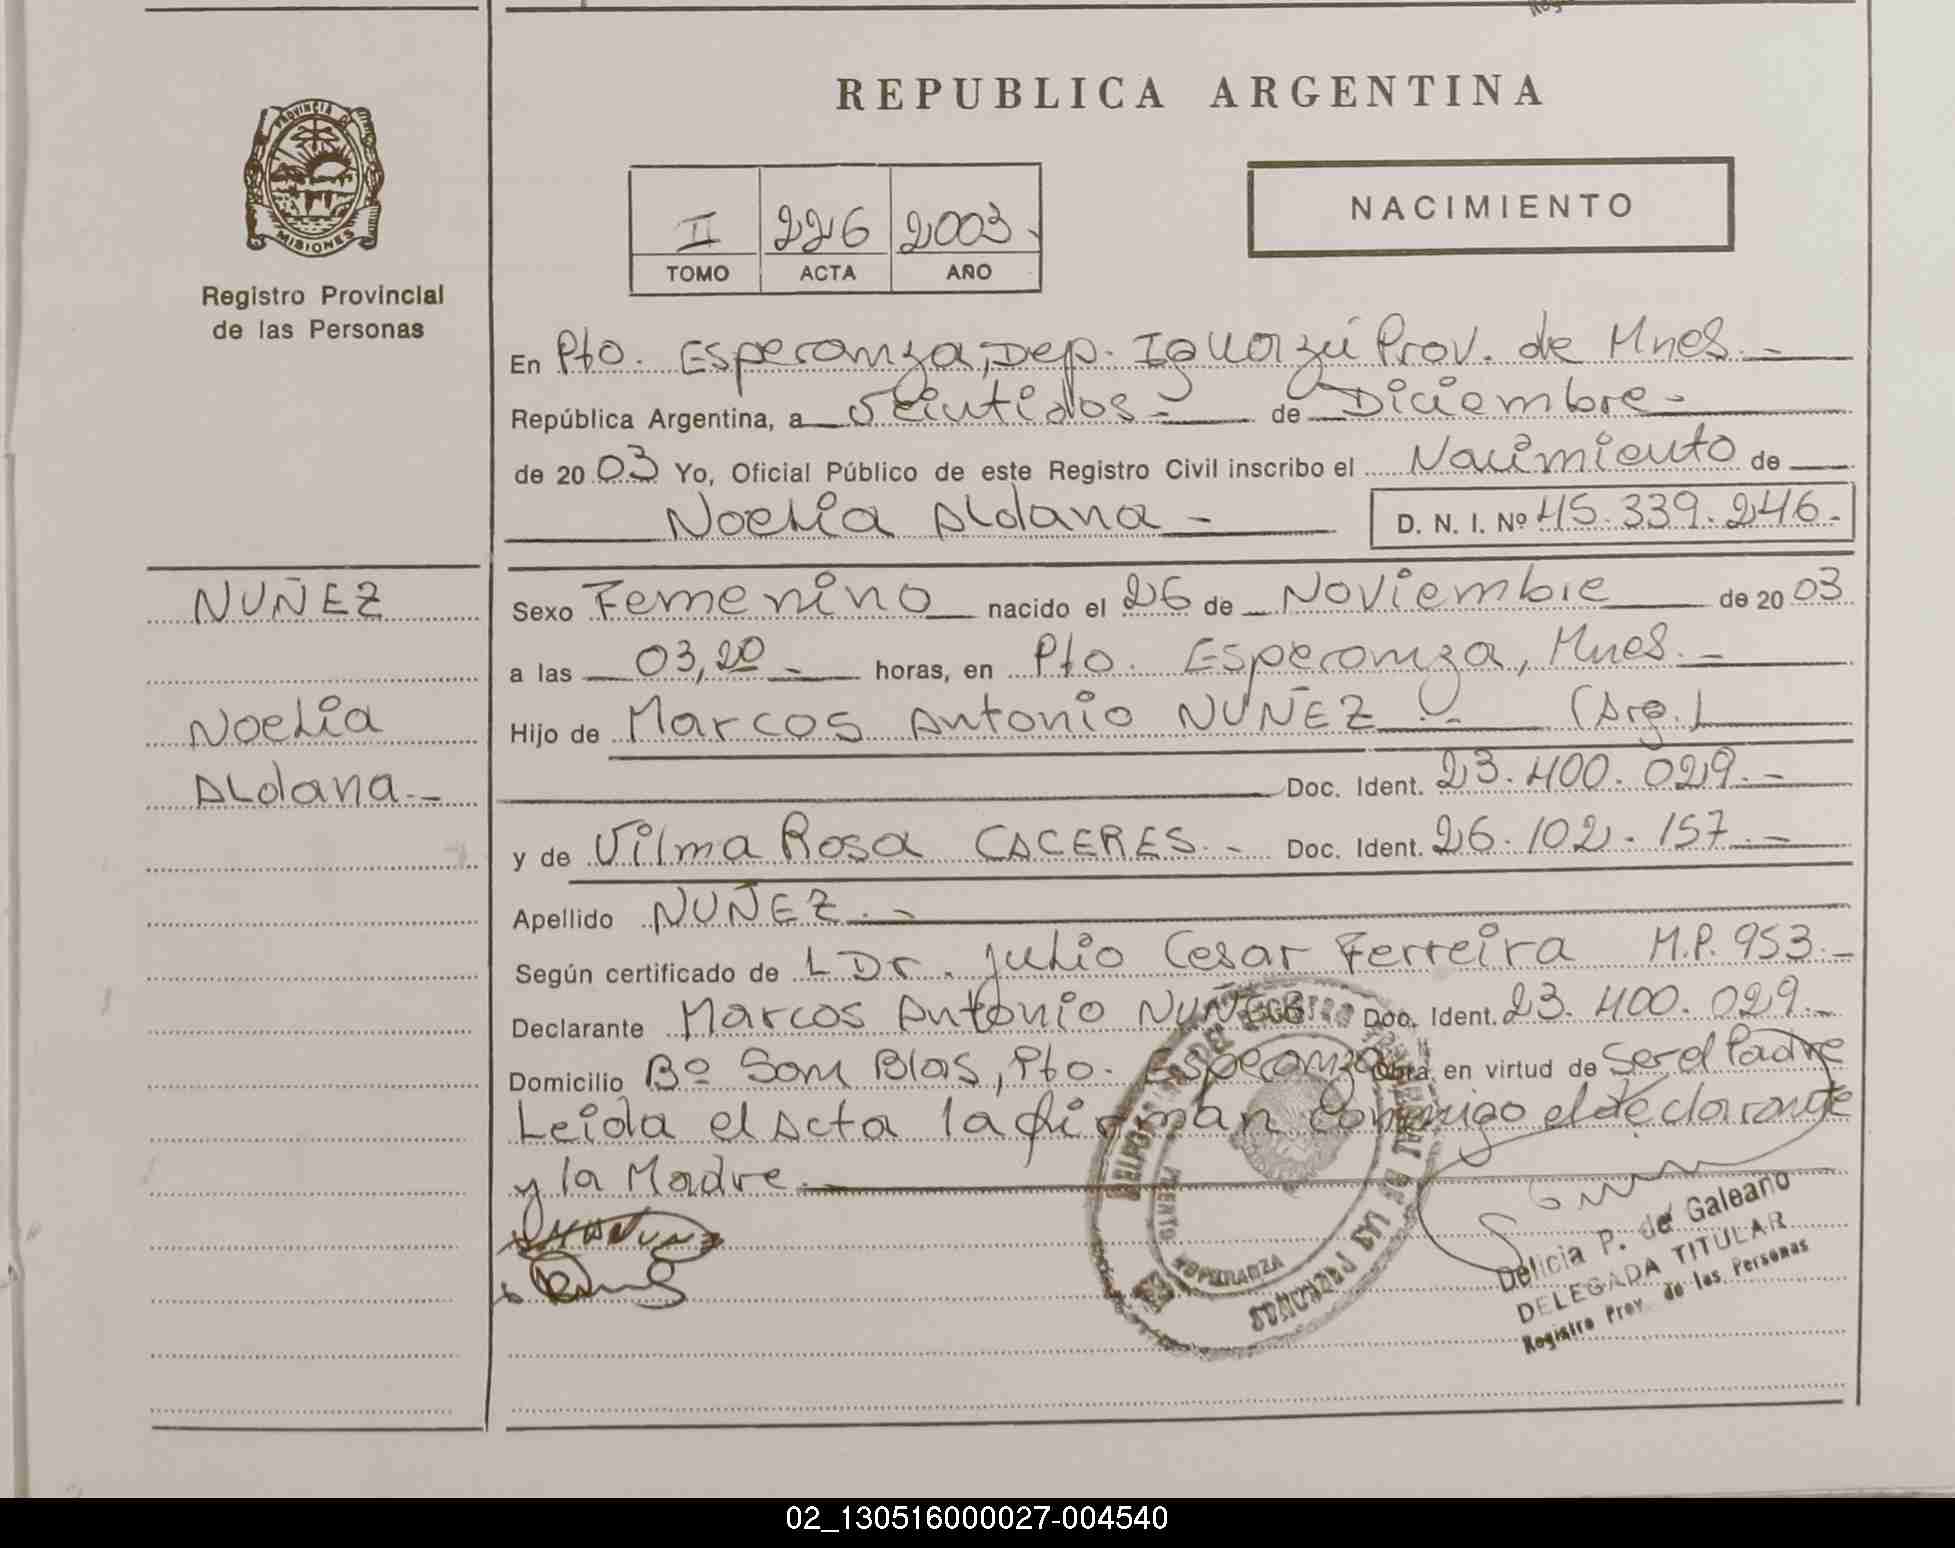 REPUBLICA ARGENTINA
PROVINCIA DE
MISIONES
Registro Provincial
de las Personas
II 226 2003.
TOMO ACTA AÑO
NACIMIENTO
En Pto. Esperanza, Dep. Iguazú Prov. de Mnes. -
República Argentina, a Veintidos - de Diciembre -
de 20 03 Yo, Oficial Público de este Registro Civil inscribo el Nacimiento de
Noelia Aldana - D. N. I. Nº 45.339.246.-
NUÑEZ
Noelia
Aldana.-
Sexo Femenino nacido el 26 de Noviembre de 20 03
a las 03,20 - horas, en Pto. Esperanza, Mnes. -
Hijo de Marcos Antonio NUÑEZ (Arg.)
Doc. Ident. 23.400.029.-
y de Vilma Rosa CACERES. - Doc. Ident. 26.102.157.-
Apellido NUÑEZ.-
Según certificado de L Dr. Julio Cesar Ferreira M.P. 953.-
Declarante Marcos Antonio NUÑEZ Doc. Ident. 23.400.029.-
Domicilio Bº San Blas, Pto. Esperanza Obra en virtud de Ser el Padre
Leida el Acta la firman Conmigo el declarante
y la Madre.-
REGISTRO PROVINCIAL DE LAS PERSONAS
ESPERANZA
Delicia P. de Galeano
DELEGADA TITULAR
Registro Prov. de las Personas
02_130516000027-004540